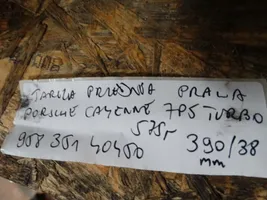 TARCZA PRZEDNIA PRAWA
PORSCHE CAYENNE 7P5 TURBO
958 351 40450 390/38
mm